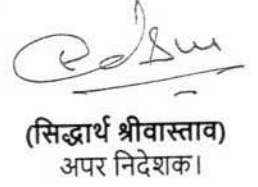 (सिद्धार्थ श्रीवास्ताव)
अपर निदेशक।